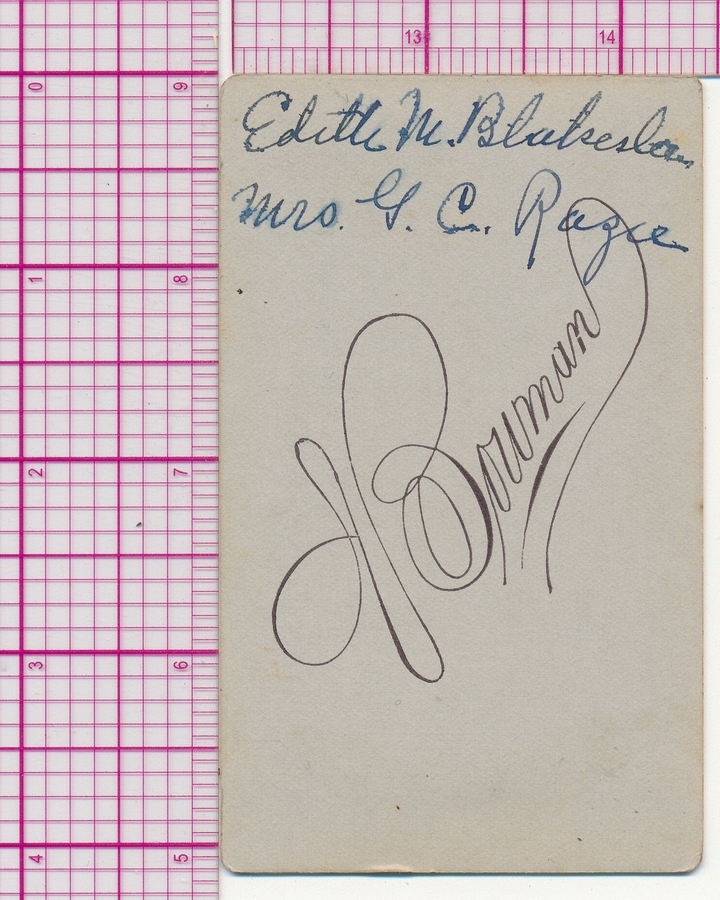 13 14
0 9
Edith M. Blakeslee
Mrs. G. C. Razee
1 8
Bowman
2 7
3 6
4 5